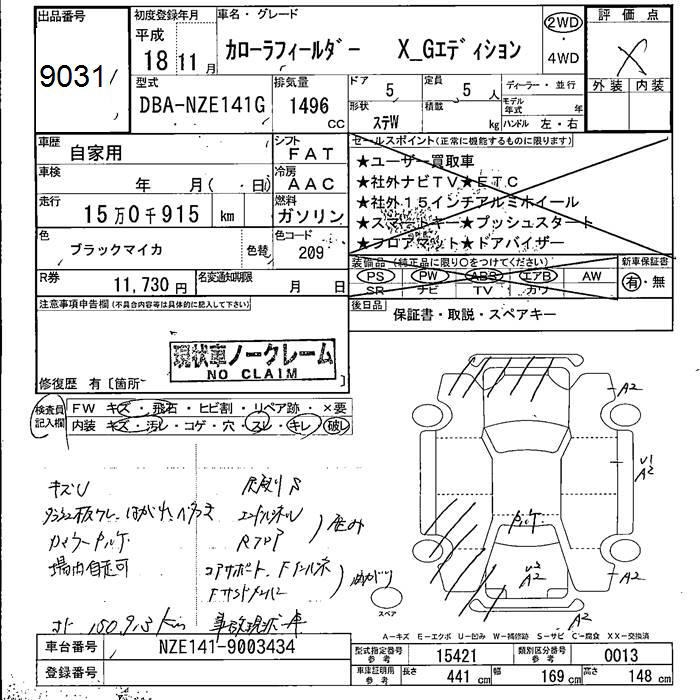 出品番号
9031
初度登録年月
平成
18 11月
車名・グレード
カローラフィールダー X_Gエディション
2WD
・
4WD
評価点
X
外装 内装
型式
DBA-NZE141G
排気量
1496
CC
ドア
5
定員
5人
形状
ステW
積載
kg
ディーラー・並行
モデル年式
年
ハンドル 左・右
車歴
自家用
シフト
FAT
車検
年 月( 日)
冷房
AAC
走行
15万0千915 km
燃料
ガソリン
色
ブラックマイカ
色替
色コード
209
R券
11,730円
名変通知期限
月 日
セールスポイント(正常に機能するものに限ります)
★ユーザー買取車
★社外ナビTV★ETC
★社外15インチアルミホイール
★スマートキー★プッシュスタート
★フロアマット★ドアバイザー
装備品(純正品に限り○をつけてください)
PS PW ABS エアB AW
SR ナビ TV カワ
新車保証書
有・無
後日品
保証書・取説・スペアキー
注意事項申告欄(不具合内容等は具体的に記入して下さい)
現状車ノークレーム
NO CLAIM
修復歴 有〔箇所
検査員記入欄
FW キズ・飛石・ヒビ割・リペア跡・×要
内装 キズ・汚レ・コゲ・穴・スレ・キレ・破レ
キズU
場内自走可
コアサポート
A2
U1
A2
A2
U3
A2
A2
スペア
A-キズ E-エクボ U-凹み W-補修跡 S-サビ C-腐食 XX-交換済
車台番号
NZE141-9003434
登録番号
型式指定番号
参考
15421
類別区分番号
参考
0013
車庫証明用
参考
長さ
441 cm
幅
169 cm
高さ
148 cm